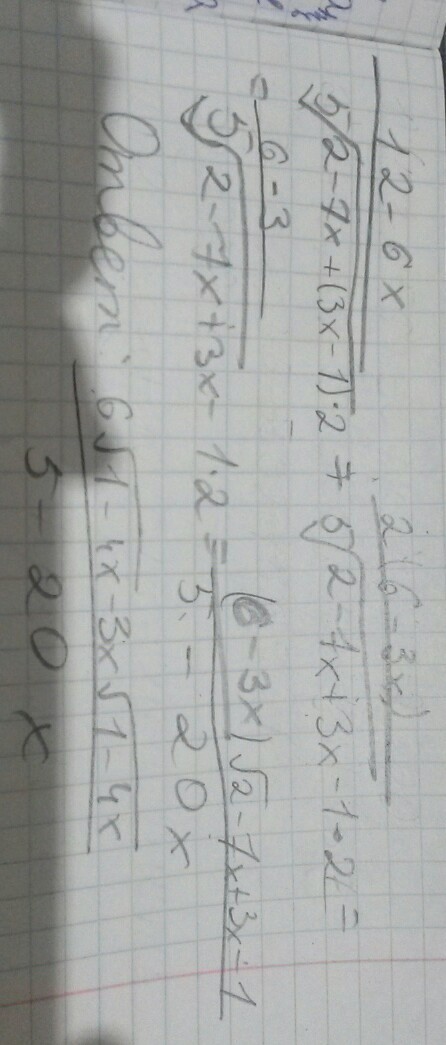 12-6x / 5√2-7x+(3x-1)·2 + 2(6-3x) / 5√2-7x+3x-1·2 =
= 6-3 / 5√2-7x+3x-1·2 = (6-3x)√2-7x+3x-1 / 5-20x
Ответ: 6√1-4x-3x√1-4x / 5-20x